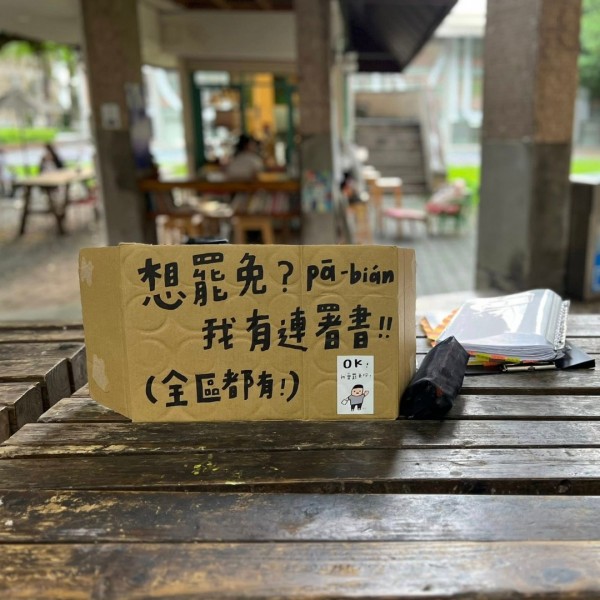 想罷免? pā-bián
我有連署書!!
(全區都有!)
OK!